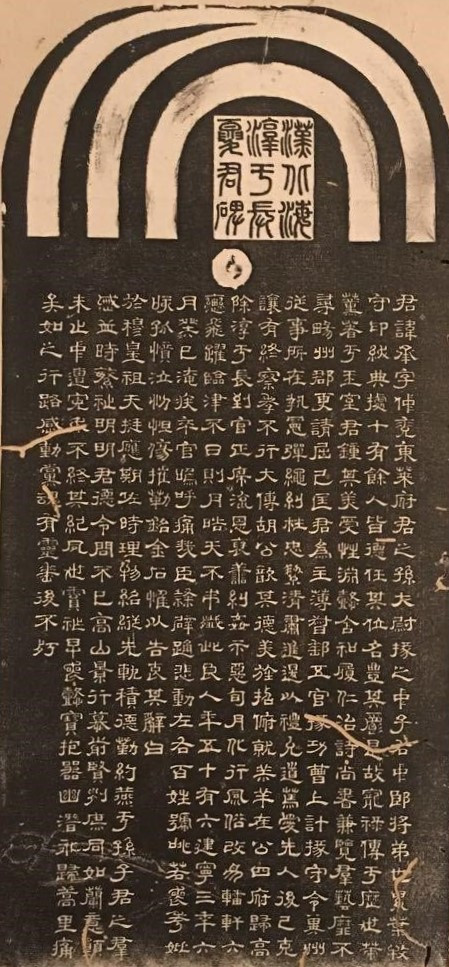 漢北海
淳于長
夏君碑
君諱承字仲兗東萊府君之孫大尉掾之中子右中郎將弟也累葉牧
守印紱典據十有餘人皆德任其位名豐其爵是故寵祿傳于歷世策
薰著于王室君鍾其美受性淵懿含和履仁治詩尚書兼覽群藝靡不
尋暢州郡更請屈己匡君為主簿督郵五官掾功曹上計掾守令冀州
從事所在執憲彈繩糾枉忠絜清肅進退以禮允道篤愛先人後己克
讓有終察孝不行大傅胡公歆其德美旌招俯就羔羊在公四府歸高
除淳于長到官正席流恩褒善糾姦示惡旬月化行風俗改易轓軒六
轡飛躍臨津不日則月皓天不弔殲此良人年五十有六建寧三年六
月癸巳淹疾卒官嗚呼痛哉臣隸辟踊悲動左右百姓號咷若喪考妣
咳孤憤泣忉怛傷摧勒銘金石惟以告哀其辭曰
於穆皇祖天挺應期佐時理物紹縱先軌積德勤約燕于孫子君之群
慼並時繁祉明明君德令問不已高山景行慕前賢列庶同如蘭意願
未止中遭冤夭不終其紀夙世實祚早喪懿寶抱器幽潛永歸蒿里痛
矣如之行路感動黨魂有靈垂後不朽